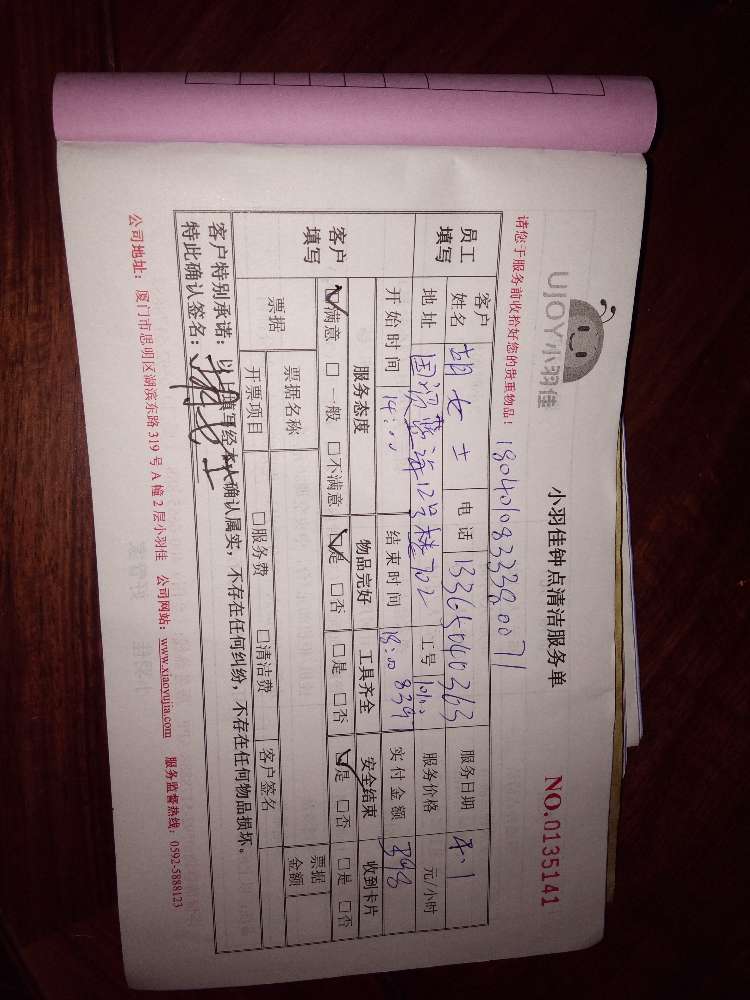 UJOY小羽佳
小羽佳钟点清洁服务单
NO.0135141
请您于服务前收拾好您的贵重物品！
员工填写 客户姓名 胡女士 电话 13365040363 服务日期 4.1
地址 12号楼702 工号 服务价格 元/小时
开始时间 14:00 结束时间 18:00 实付金额
客户填写 服务态度 物品完好 工具齐全 安全结束 收到卡片
☑满意 □一般 □不满意 ☑是 □否 □是 □否 ☑是 □否 □是 □否
票据 票据名称 客户签名 票据金额
开票项目 □服务费 □清洁费
客户特别承诺：以上填写经本人确认属实，不存在任何纠纷，不存在任何物品损坏。
特此确认签名：
公司地址：厦门市思明区湖滨东路319号A幢2层小羽佳 公司网站：www.xiaoyujia.com 服务监督热线：0592-5888123